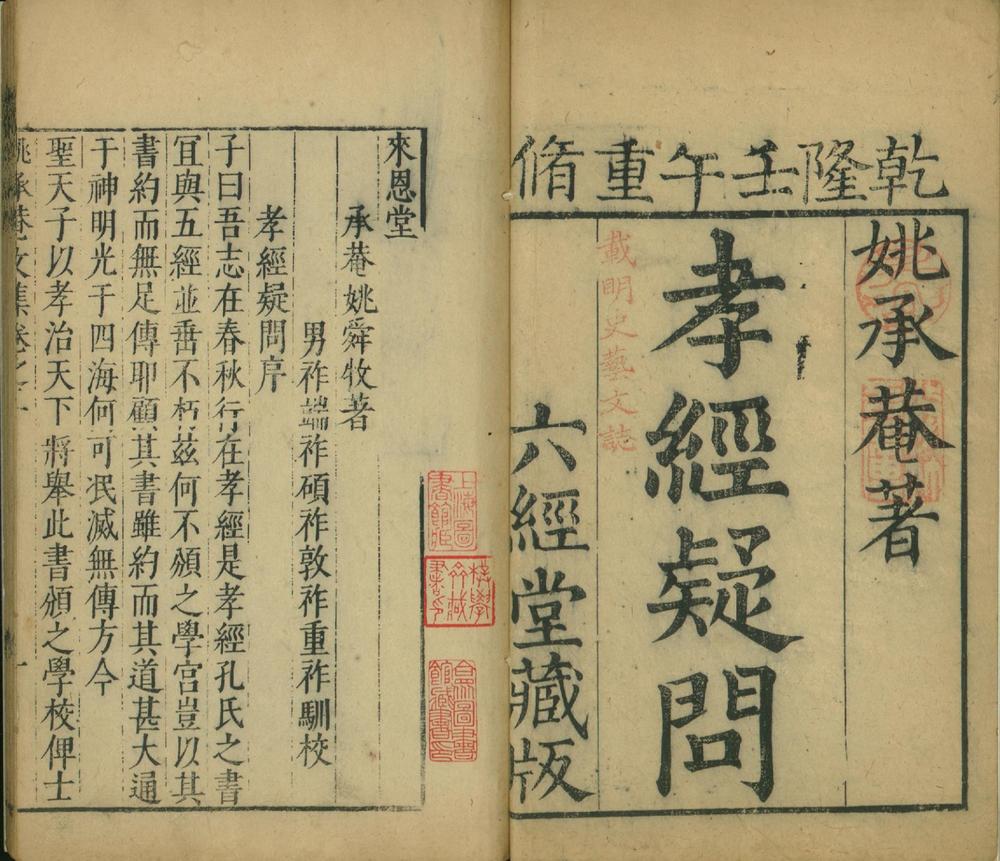 乾隆壬午重脩
姚承菴著
孝經疑問
載明史藝文誌
六經堂藏版
來恩堂
承菴姚舜牧著
男祚端祚碩祚敦祚重祚馴校
孝經疑問序
子曰吾志在春秋行在孝經是孝經孔氏之書
宜與五經並垂不朽茲何不頒之學宮豈以其
書約而無足傳耶顧其書雖約而其道甚大通
于神明光于四海何可泯滅無傳方今
聖天子以孝治天下將舉此書頒之學校俾士
姚承菴文集卷之一
上海圖書館藏
合眾圖書館藏書印